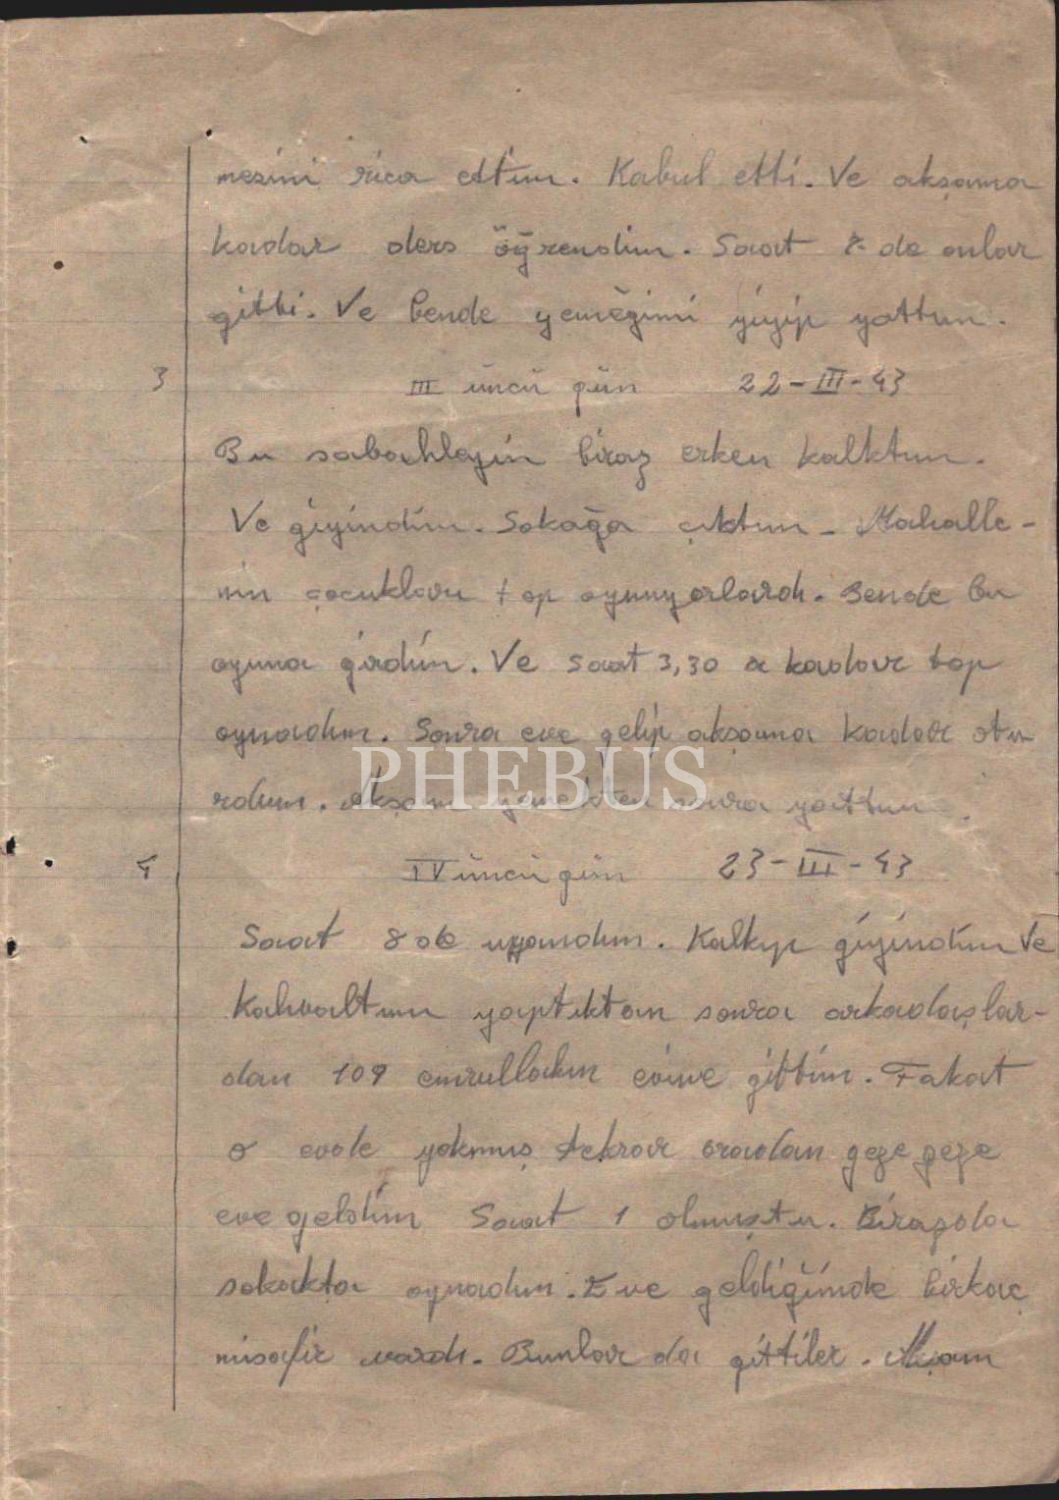 mesini rica ettim. Kabul etti. Ve akşama
kadar ders öğrendim. Saat de onlar
gitti. Ve bende yemeğimi yiyip yattım.
3 III üncü gün 22-III-43
Bu sabahleyin biraz erken kalktım.
Ve giyindim. Sokağa çıktım - Mahalle-
nin çocukları top oynuyorlardı. Bende bu
oyuna girdim. Ve saat 3,30 a kadar top
oynadım. Sonra eve gelip akşama kadar otu
rdum. Akşam yemekten sonra yattım.
PHEBUS
4 IV üncü gün 23-III-43
Saat 8 de uyandım. Kalkıp giyindim Ve
Kahvaltımı yaptıktan sonra arkadaşlar-
dan 109 emrullahın evine gittim. Fakat
o evde yokmuş tekrar oradan geze geze
eve geldim Saat 1 olmuştu. Birazda
sokakta oynadım. Eve geldiğimde birkaç
misafir vardı. Bunlar da gittiler. Akşam